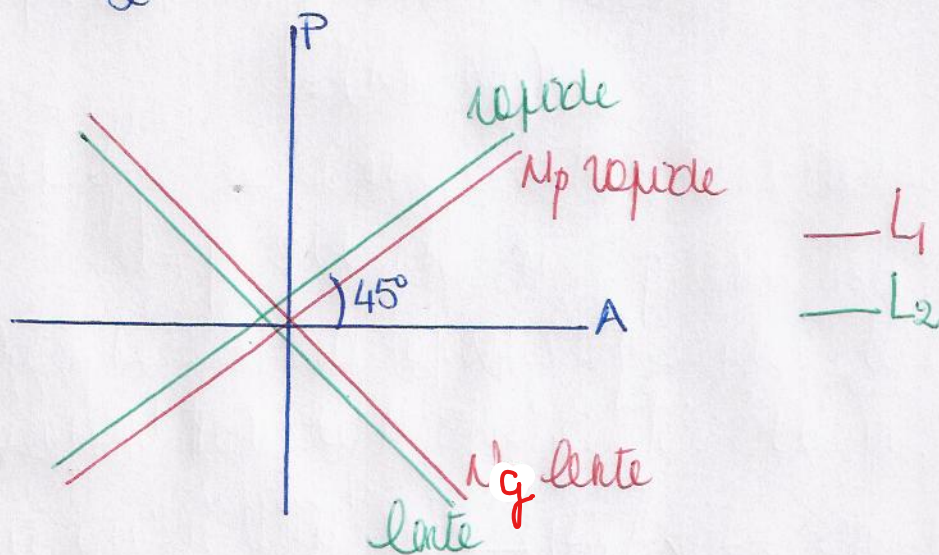 P
rapide
Np rapide
L1
45°
A
L2
N'g lente
lente